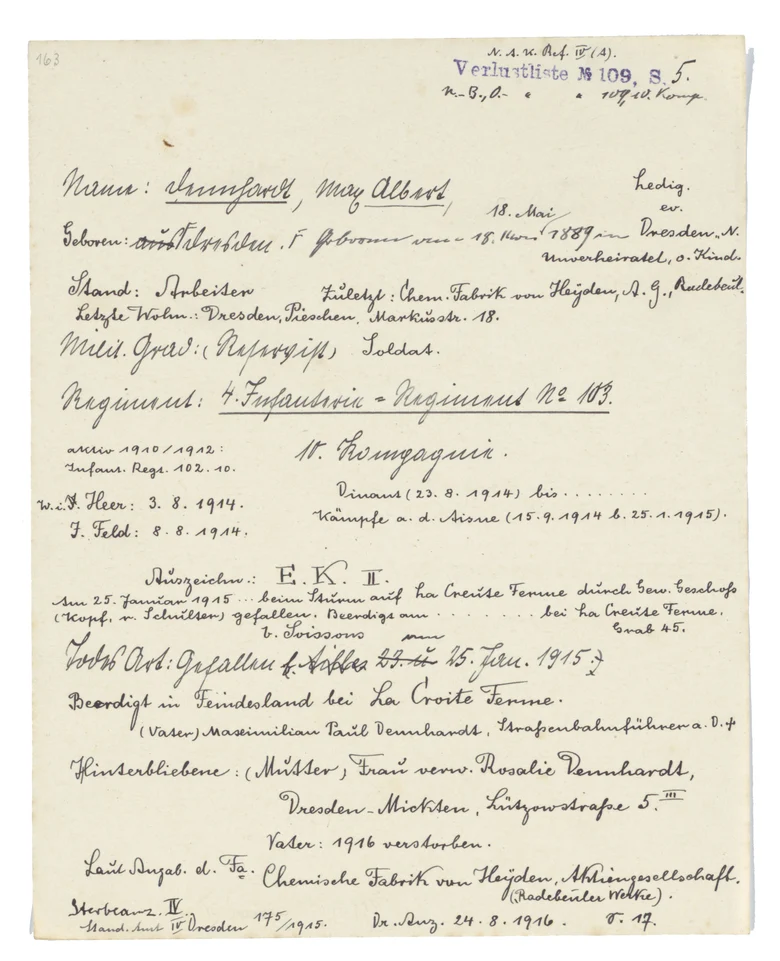 163
N. A. K. Ref. IV (A).
Verlustliste № 109, S. 5.
n.-B., O.- " " 109, 10. Komp.
Name: Dennhardt, Max Albert,
Ledig.
ev.
18. Mai
Geboren: aus Dresden. geboren am 18. 1889 in Dresden-N.
Unverheiratet, o. Kind.
Stand: Arbeiter Zuletzt: Chem. Fabrik von Heyden, A. G., Radebeul.
Letzte Wohn.: Dresden, Pieschen, Markusstr. 18.
Milit. Grad: (Reservist) Soldat.
Regiment: 4. Infanterie = Regiment № 103.
aktiv 1910/1912:
Infant. Regt. 102. 10.
10. Kompagnie.
W. i. Heer: 3. 8. 1914.
Dinant (23. 8. 1914) bis ........
J. Feld: 8. 8. 1914.
Kämpfe a. d. Aisne (15. 9. 1914 b. 25. 1. 1915).
Auszeichn.: E. K. II.
Am 25. Januar 1915 ... beim Sturm auf La Creute Ferme durch Gew. Geschoß
(Kopf, r. Schulter) gefallen. Beerdigt am ........ bei La Creute Ferme.
b. Soissons am Grab 45.
Todes Art: Gefallen 23. u. 25. Jan. 1915.
Beerdigt in Feindesland bei La Croite Ferme.
(Vater) Maximilian Paul Dennhardt, Straßenbahnführer a. D. +
Hinterbliebene: (Mutter) Frau verw. Rosalie Dennhardt,
Dresden-Mickten, Lützowstraße 5. III
Vater: 1916 verstorben.
Laut Angab. d. Fa. Chemische Fabrik von Heyden, Aktiengesellschaft.
(Radebeuler Werke).
Sterbeanz. IV.
Stand. Amt IV Dresden 175/1915. Dr. Anz. 24. 8. 1916. S. 17.